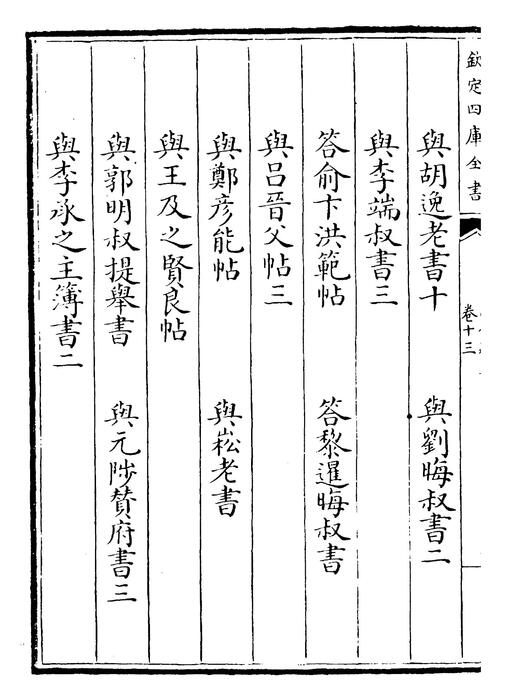 欽定四庫全書
卷十三
與胡逸老書十
與劉晦叔書二
與李端叔書三
答俞卞洪範帖
答黎暹晦叔書
與吕晉父帖三
與鄭彦能帖
與崧老書
與王及之賢良帖
與郭明叔提舉書
與元陟賛府書三
與李承之主簿書二